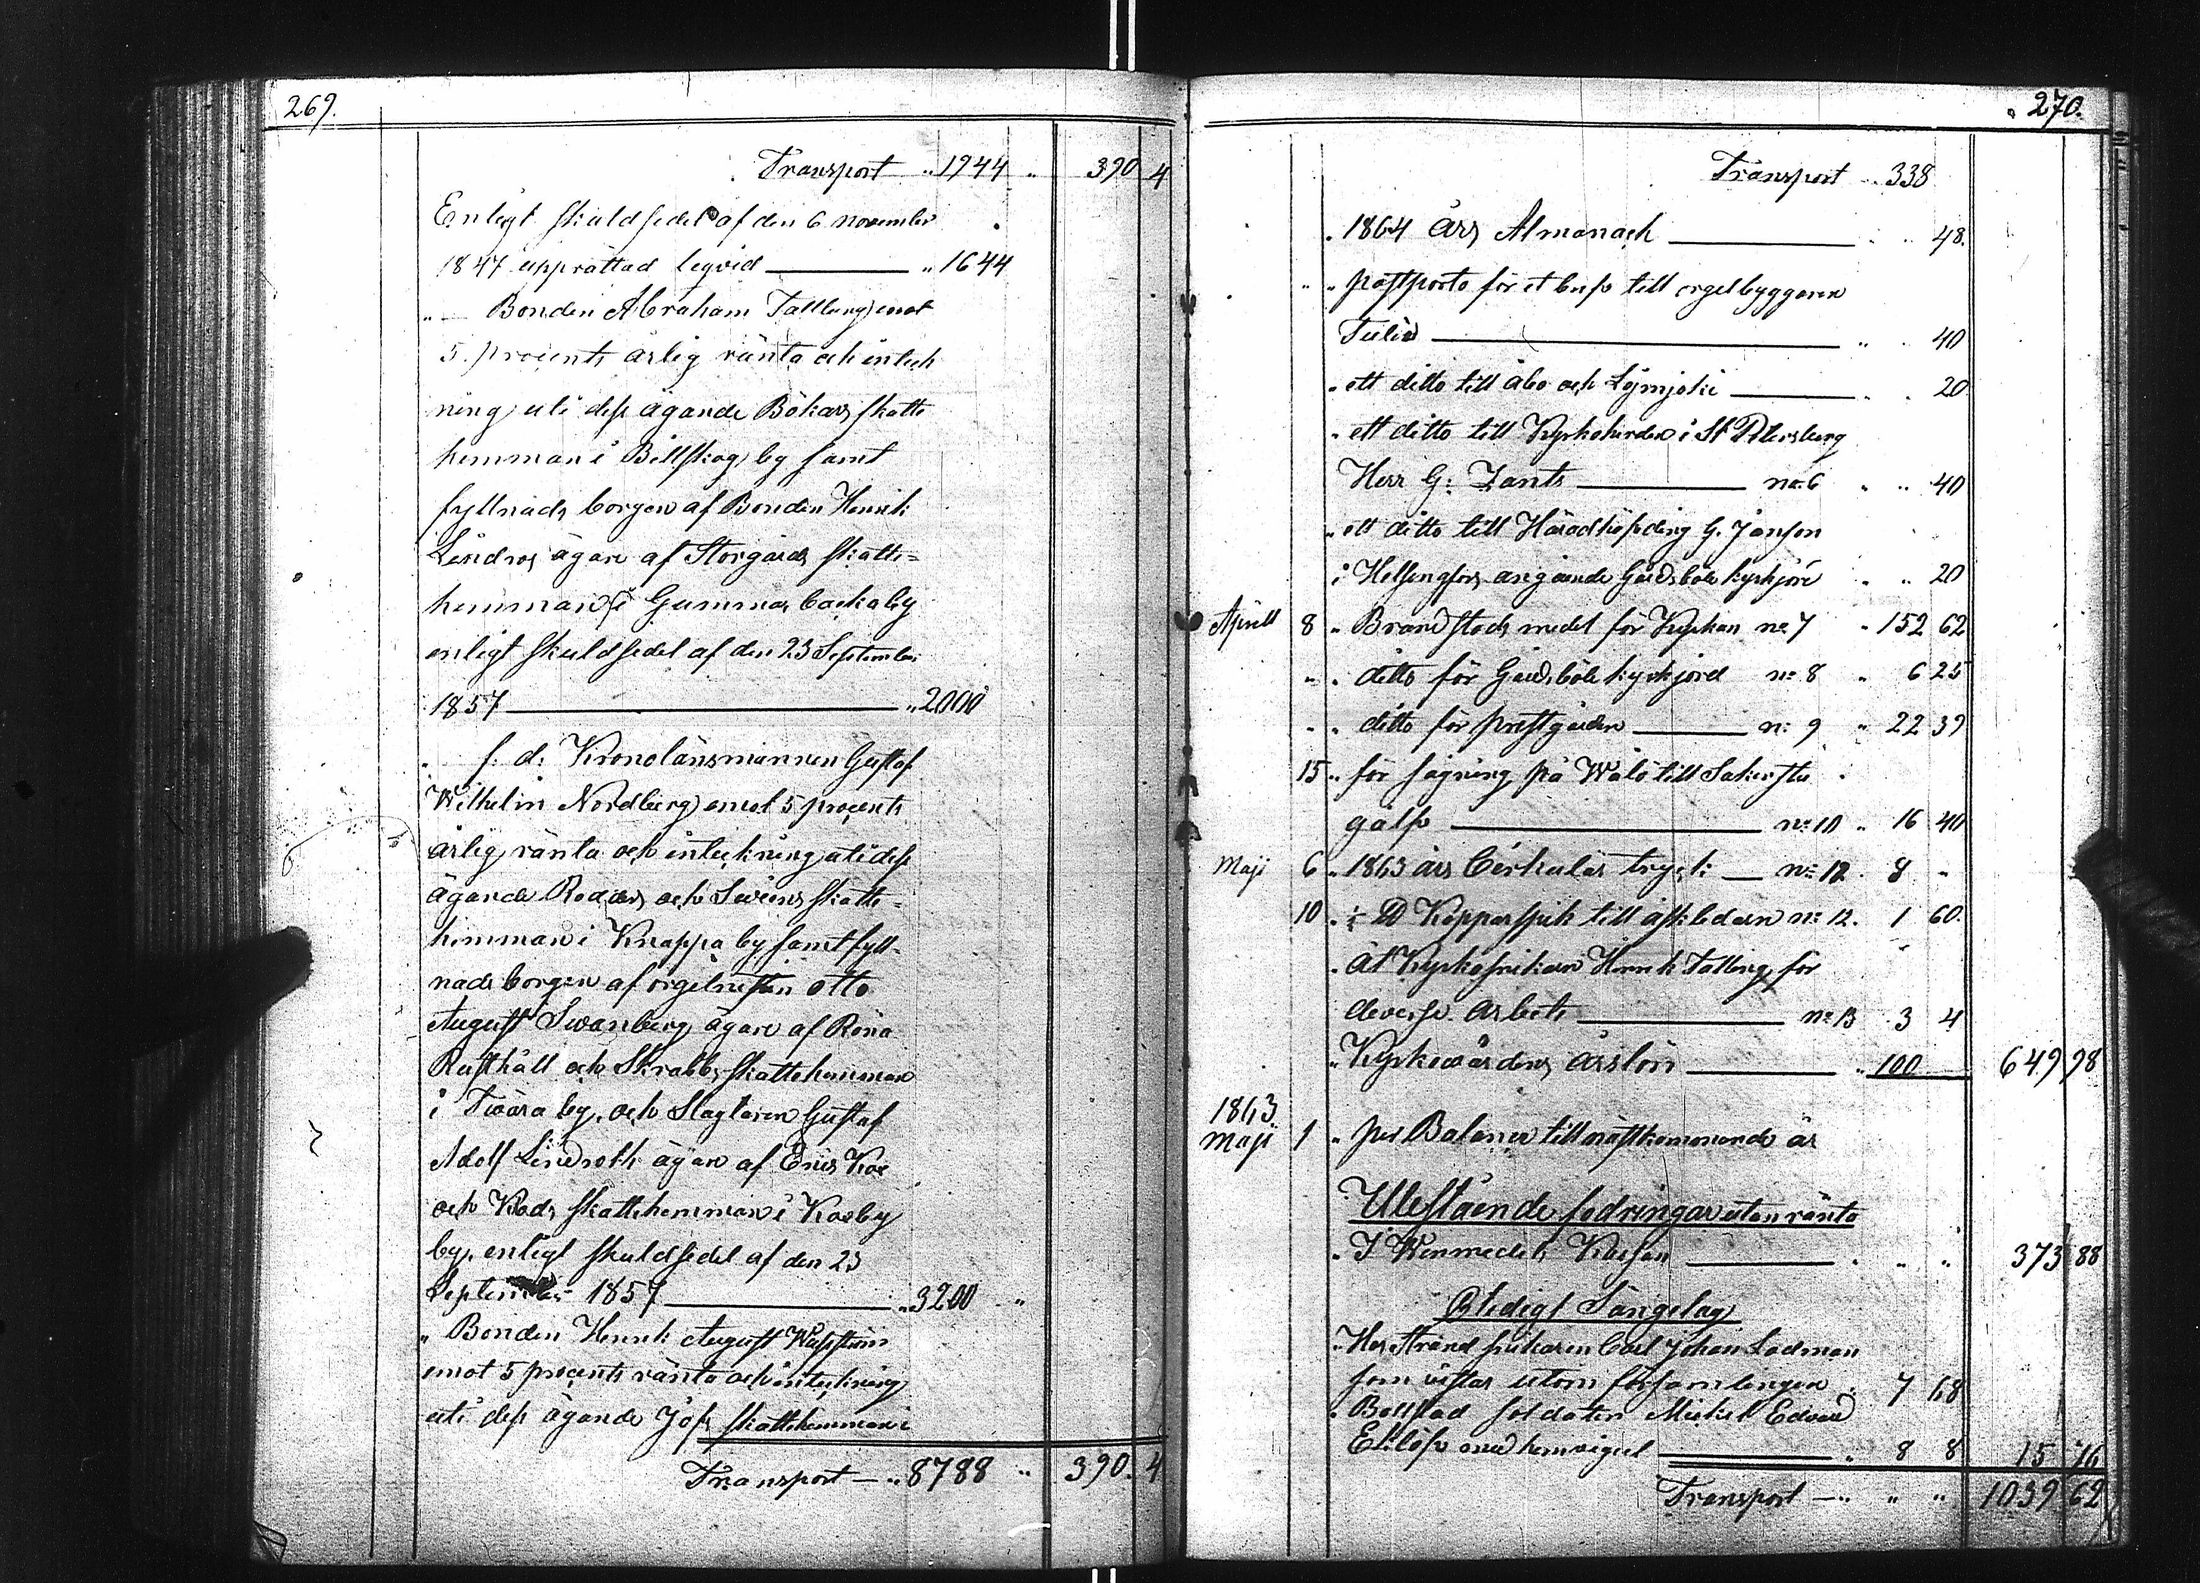 269.
Transport „ 1944 „ 390 4
Enligt skuldsedel af den 6 november
1847 upprättad legvid „ 1644
„ — Bonden Abraham Tallberg emot
5. procents årlig ränta och inteck
ning uti dess ägande Bökars skatte
hemman i Billskog by samt
fyllnads borgen af Bonden Henrik
Lindros ägare af Storgårds skatte=
hemman i Gummar backa by
enligt skuldsedel af den 23 September
1857 „ 2000
„ f: d: Kronolänsmannen Gustaf
Wilhelm Nordberg emot 5 procents
årlig ränta och inteckning uti dess
ägande Rodders och Swens skatte=
hemman i Knappa by samt fyll-
nads borgen af orgelnisten Otto
August Swanberg ägare af Röna
Rusthåll och Skrabbs skattehemman
i Twära by, och Slagtaren Gustaf
Adolf Lindroth ägare af Eriis Koe
och Koods skattehemman i Koeby
by, enligt skuldsedel af den 23
September 1857 „ 3200 „
„ Bonden Henrik August Wasström
emot 5 procents ränta och inteckning
uti dess ägande Jofs skattehemman i
Transport — „ 8788 „ 390. 4
270.
Transport „ 338
„ 1864 års Almanack „ „ 48.
„ „ postporto för et bref till orgelbyggaren
Tulin „ „ 40
„ ett ditto till Åbo och Löjmjoki „ „ 20
„ ett ditto till Kyrkoherden i St Petersburg
Herr G: Zants no: 6 „ „ 40
„ ett ditto till Häradshöfding G. Janson
i Helsingfors angående Gårdsböle kyrkjord „ „ 20
Aprill 8 „ Brandstods medel för Kyrkan no 7 „ 152 62
„ „ ditto för Gårdsböle kyrkjord no 8 „ 6 25
„ „ ditto för prestgården no: 9 „ 22 39
15 „ för sågning på Walö till Sakerstu
golf no: 10 „ 16 40
Maji 6 „ 1863 års Cirkulär tryck no: 12. 8 „
10 „ Kopparspik till åskledarn no: 12. 1 60.
„ åt Kyrkosnikarn Henrik Tallberg för
diverse arbete no: 13 3 4
„ Kyrkowärdens årslön „ 100 649 98
1863.
Maji 1 „ per Balance till nästkommande år
Utestående fodringar utan ränta
„ I Winmedels Kassan „ „ „ 373 88
Oledigt Sängelag
„ Hos Strand fiskaren Carl Johan Ladman
som vistas utom församlingen „ 7 68
„ Båtstad soldaten Mickel Edvard
Eklöf med henvigsel „ 8 8 15 76
Transport — „ „ „ 1039 62